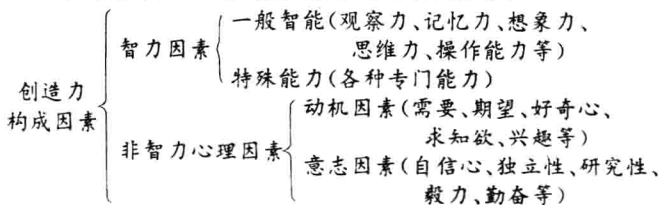 创造力
构成因素
智力因素
一般智能(观察力、记忆力、想象力、
思维力、操作能力等)
特殊能力(各种专门能力)
非智力心理因素
动机因素(需要、期望、好奇心、
求知欲、兴趣等)
意志因素(自信心、独立性、研究性、
毅力、勤奋等)